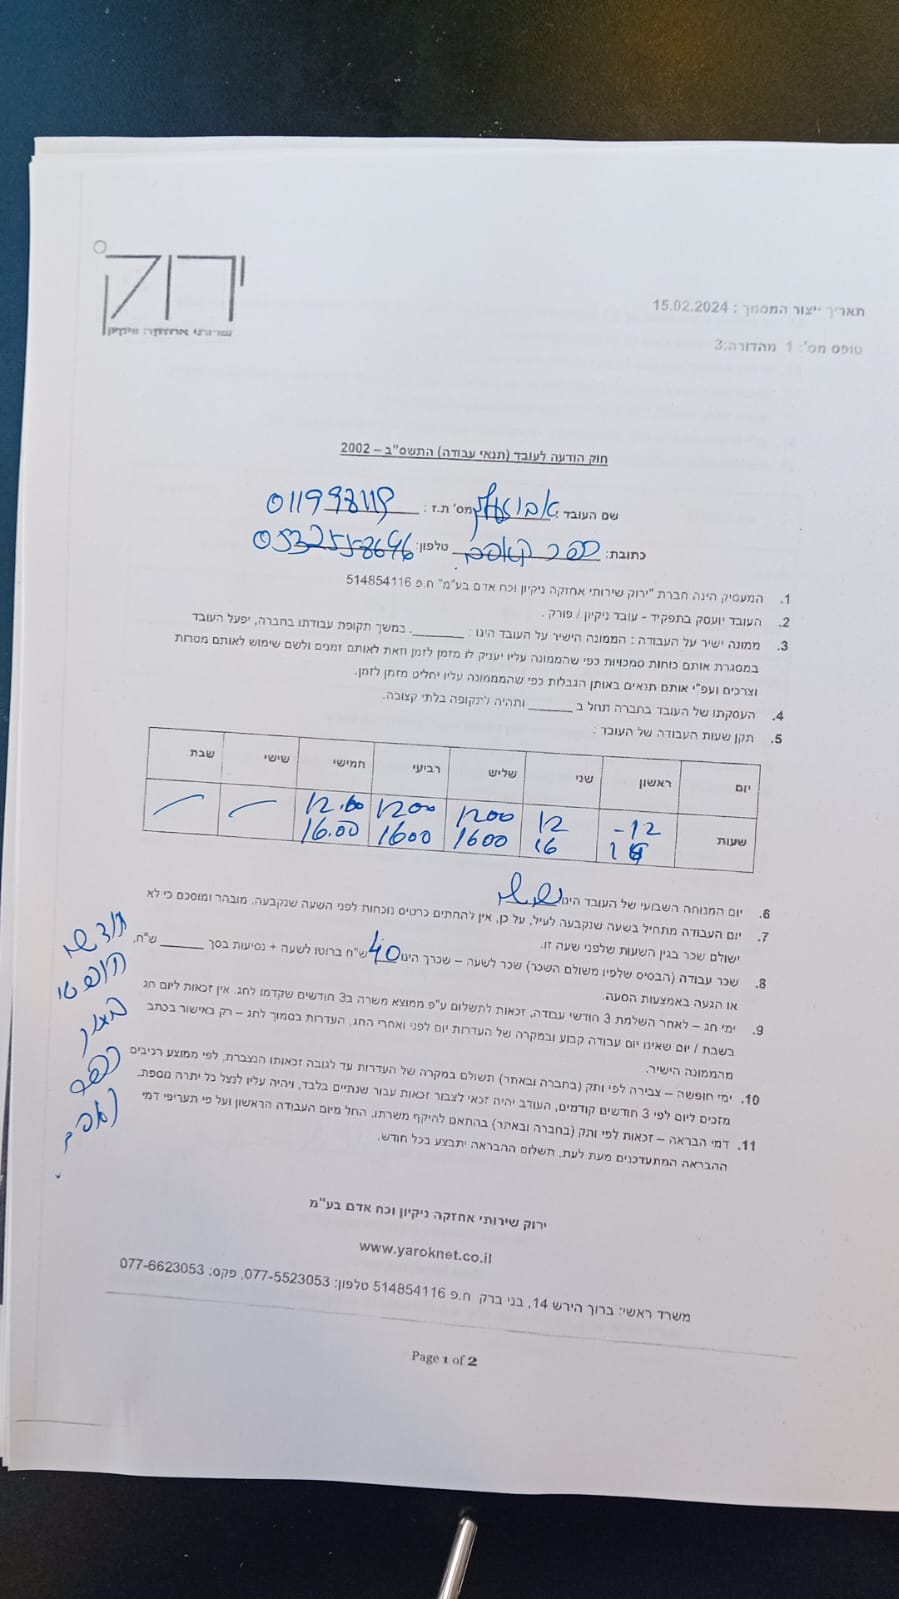 ירוק
שירותי אחזקה וניקיון
תאריך ייצור המסמך : 15.02.2024
טופס מס': 1 מהדורה:3
חוק הודעה לעובד (תנאי עבודה) התשס"ב – 2002
שם העובד : מס' ת.ז : 011998119
כתובת: טלפון:
1. המעסיק הינה חברת "ירוק שירותי אחזקה ניקיון וכח אדם בע"מ" ח.פ 514854116
2. העובד יועסק בתפקיד - עובד ניקיון / פורק .
3. ממונה ישיר על העבודה : הממונה הישיר על העובד הינו : ______. במשך תקופת עבודתו בחברה, יפעל העובד
במסגרת אותם כוחות סמכויות כפי שהממונה עליו יעניק לו מזמן לזמן וזאת לאותם זמנים ולשם שימוש לאותם מטרות
וצרכים ועפ"י אותם תנאים באותן הגבלות כפי שהמממונה עליו יחליט מזמן לזמן.
4. העסקתו של העובד בחברה תחל ב ______ ותהיה לתקופה בלתי קצובה.
5. תקן שעות העבודה של העובד :
יום ראשון שני שליש רביעי חמישי שישי שבת
שעות 12- 12 1200 1200 12.00
16 1600 1600 16.00
6. יום המנוחה השבועי של העובד הינו
7. יום העבודה מתחיל בשעה שנקבעה לעיל, על כן, אין להחתים כרטיס נוכחות לפני השעה שנקבעה. מובהר ומוסכם כי לא
ישולם שכר בגין השעות שלפני שעה זו.
8. שכר עבודה (הבסיס שלפיו משולם השכר) שכר לשעה – שכרך הינו 40 ש"ח ברוטו לשעה + נסיעות בסך ______ ש"ח,
או הגעה באמצעות הסעה.
9. ימי חג – לאחר השלמת 3 חודשי עבודה, זכאות לתשלום ע"פ ממוצע משרה ב3 חודשים שקדמו לחג. אין זכאות ליום חג
בשבת / יום שאינו יום עבודה קבוע ובמקרה של העדרות יום לפני ואחרי החג, העדרות בסמוך לחג – רק באישור בכתב
מהממונה הישיר.
10. ימי חופשה – צבירה לפי ותק (בחברה ובאתר) תשולם במקרה של העדרות עד לגובה זכאותו הנצברת, לפי ממוצע רכיבים
מזכים ליום לפי 3 חודשים קודמים, העודב יהיה זכאי לצבור זכאות עבור שנתיים בלבד, ויהיה עליו לנצל כל יתרה נוספת.
11. דמי הבראה – זכאות לפי ותק (בחברה ובאתר) בהתאם להיקף משרתו, החל מיום העבודה הראשון ועל פי תעריפי דמי
ההבראה המתעדכנים מעת לעת, תשלום ההבראה יתבצע בכל חודש.
ירוק שירותי אחזקה ניקיון וכח אדם בע"מ
www.yaroknet.co.il
משרד ראשי: ברוך הירש 14, בני ברק ח.פ 514854116 טלפון: 077-5523053, פקס: 077-6623053
Page 1 of 2